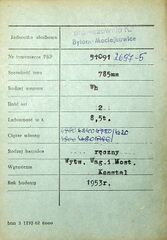 Jednostka służbowa
Bytom-Maciejkowice
Nr inwentarza PKP 51091 2697-5
Szerokość toru 785mm
Rodzaj wagonu Wh
Ilość osi 2
Ładowność w t. 8,5t.
Ciężar własny
Rodzaj hamulca ręczny
Wytwórnia Wytw. Wag. i Most. Konstal
Rok budowy 1953r.